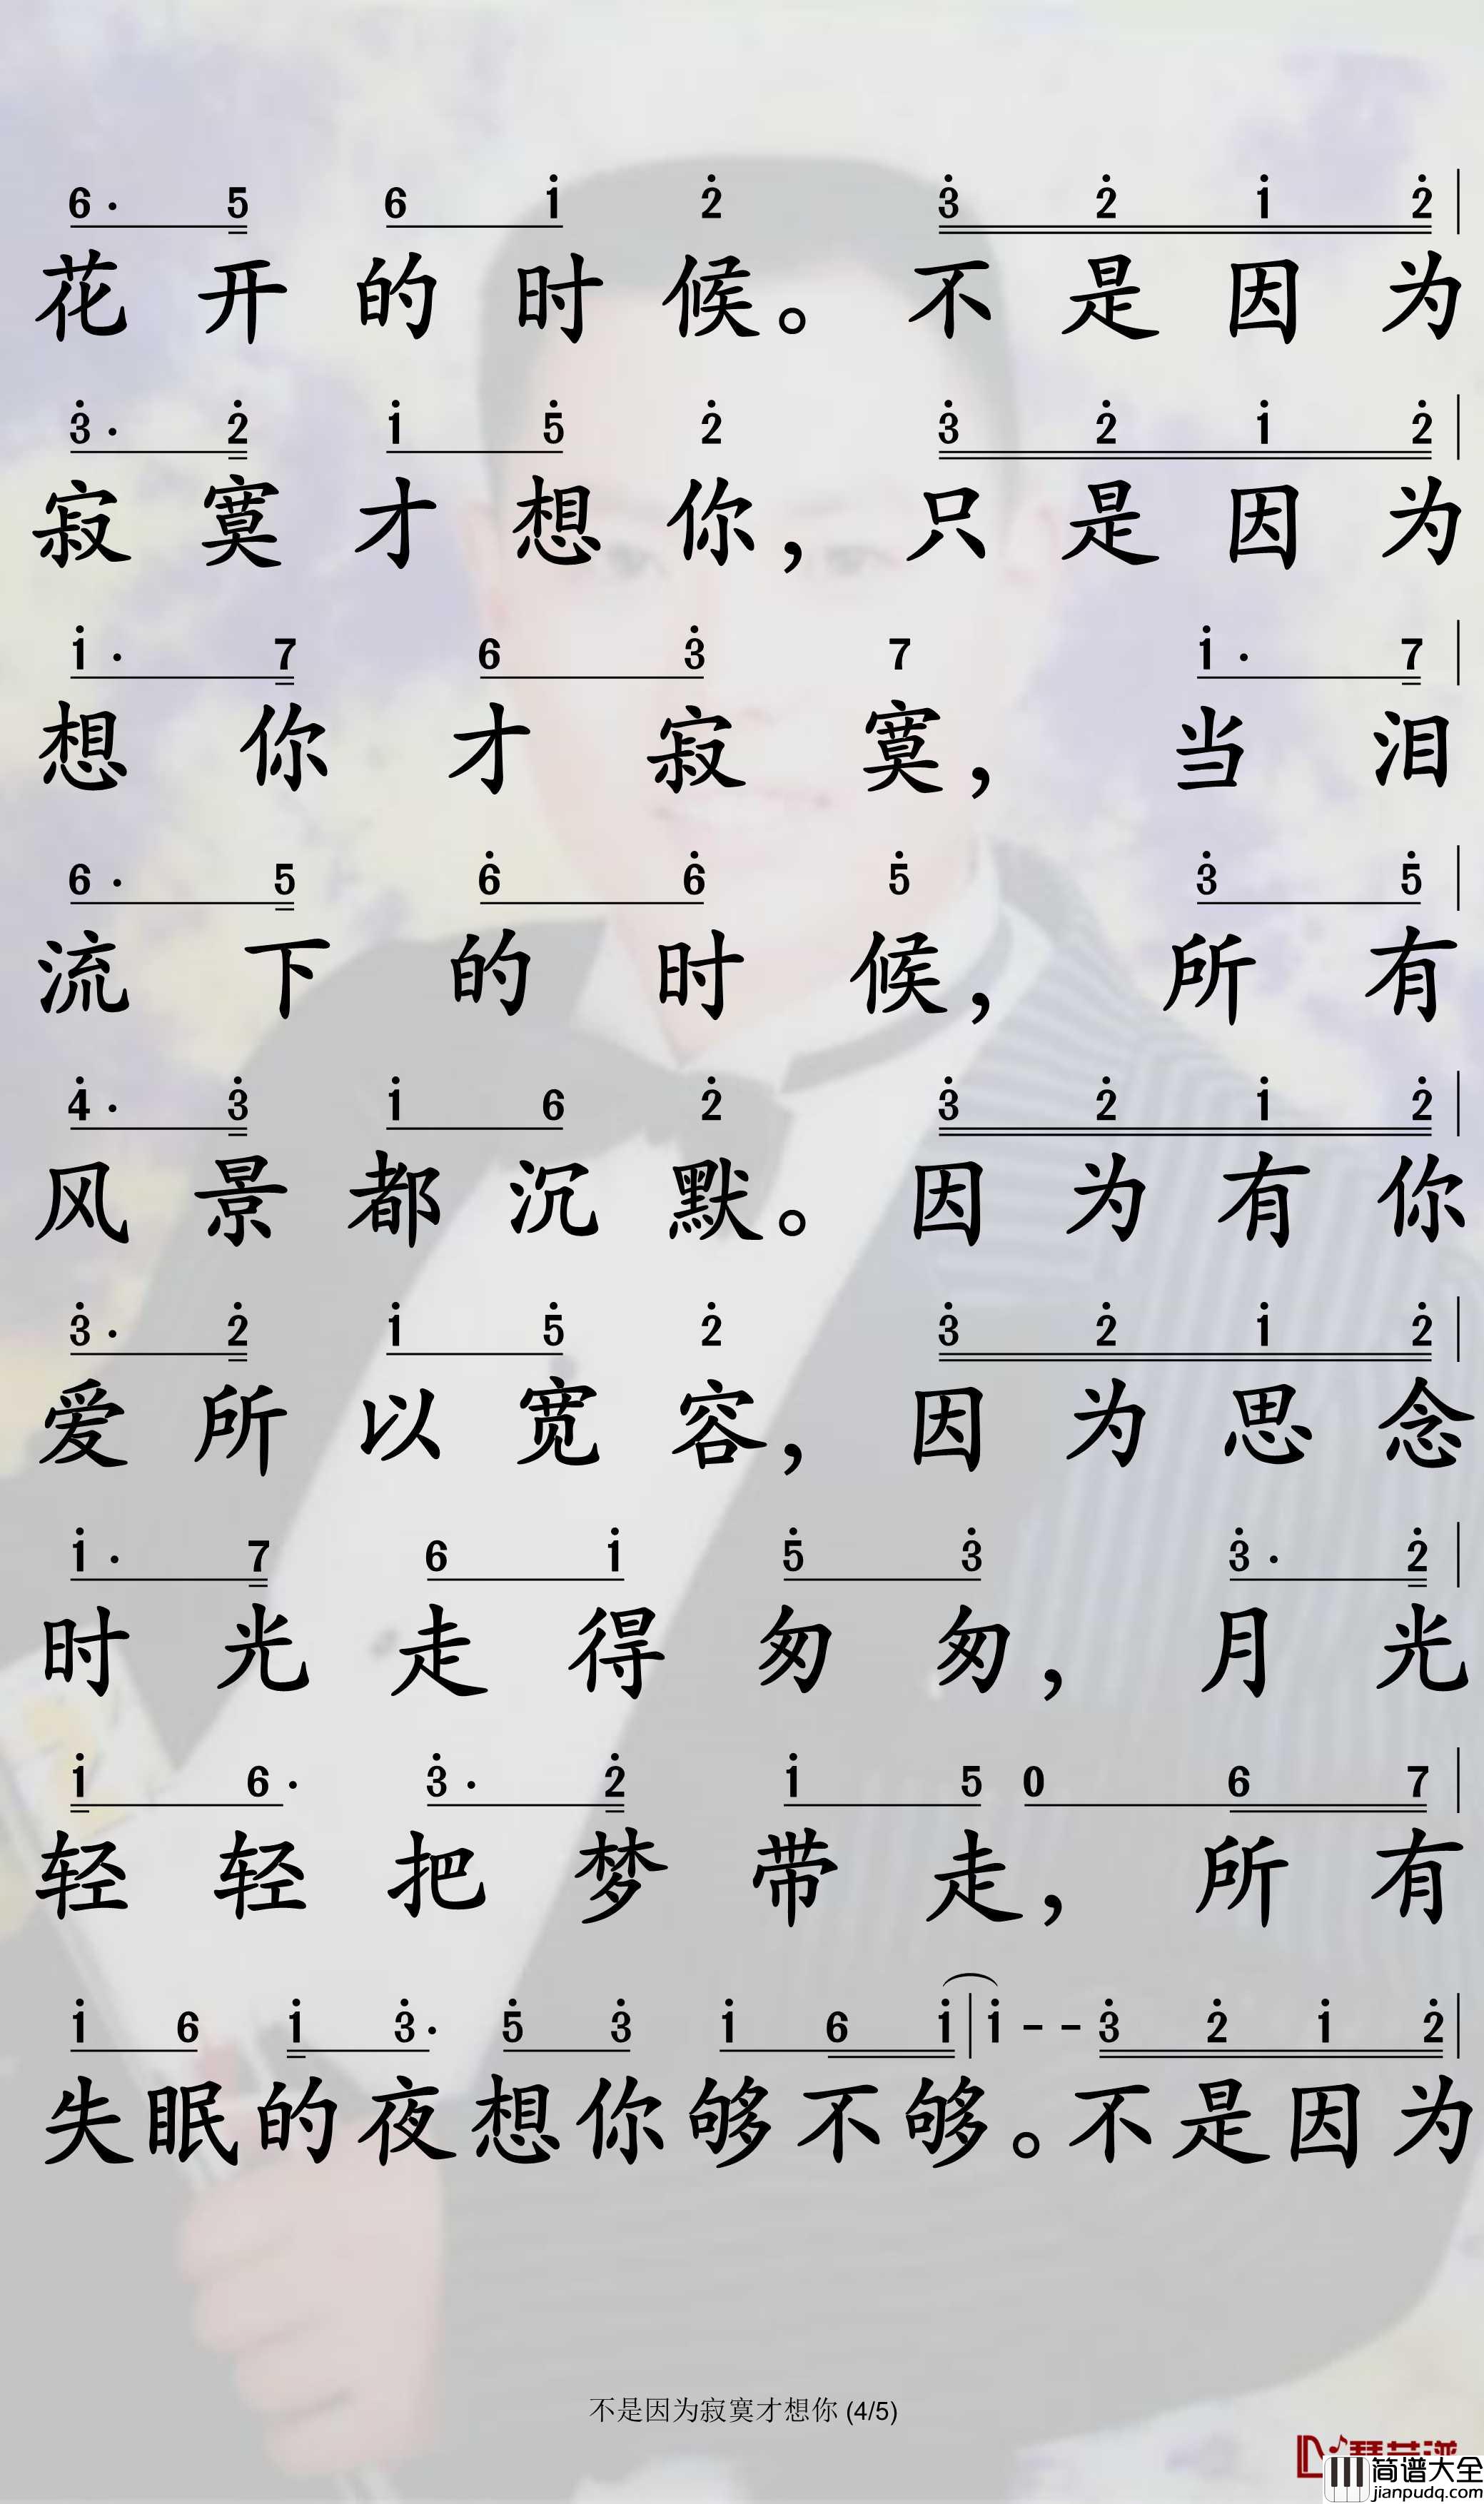 6· 5 6 1 2 3 2 1 2
花开的时候。不是因为
3· 2 1 5 2 3 2 1 2
寂寞才想你，只是因为
1· 7 6 3 7 1· 7
想你才寂寞，当泪
6· 5 6 6 5 3 5
流下的时候，所有
4· 3 1 6 2 3 2 1 2
风景都沉默。因为有你
3· 2 1 5 2 3 2 1 2
爱所以宽容，因为思念
1· 7 6 1 5 3 3· 2
时光走得匆匆，月光
1 6· 3· 2 1 5 0 6 7
轻轻把梦带走，所有
1 6 1 3· 5 3 1 6 1 | 1 - - 3 2 1 2
失眠的夜想你够不够。不是因为
不是因为寂寞才想你 (4/5)
简谱大全
jianpudq.com